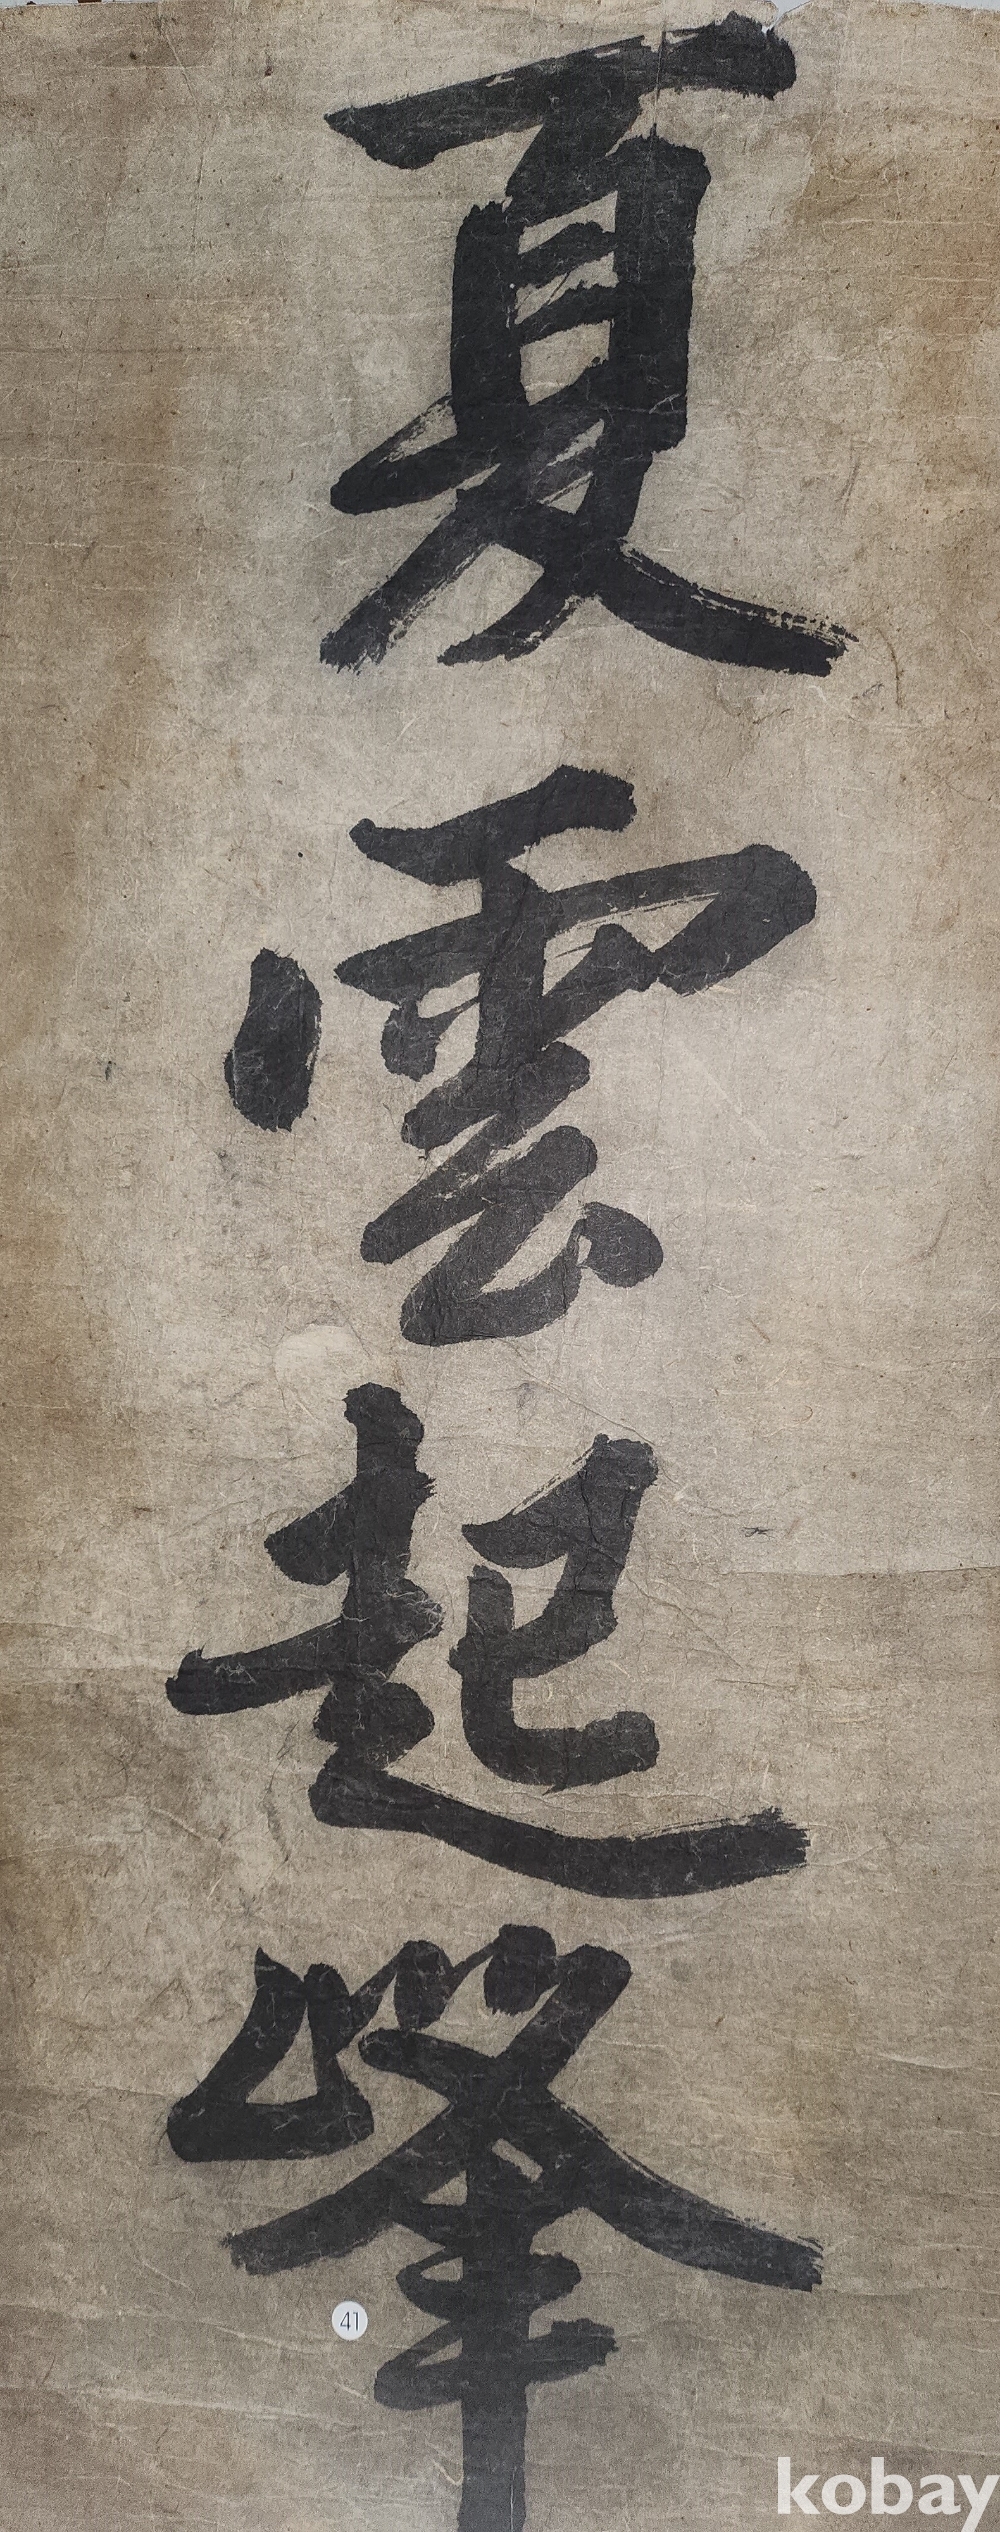 夏雲起峯
41
kobay